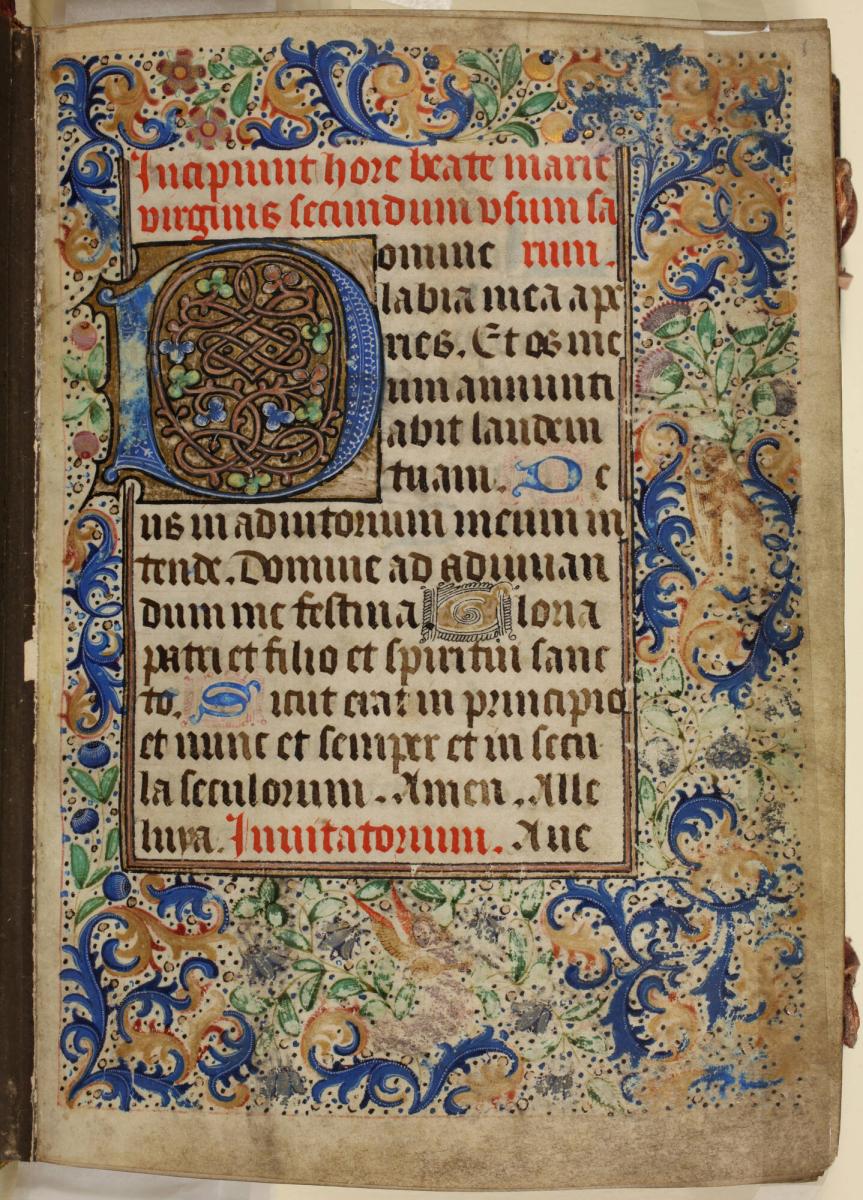 Incipiunt hore beate marie
virginis secundum vsum sa
omine rum.
labia mea ape
ries. Et os me
um annunti
abit laudem
tuam. De
us in adiutorium meum in
tende. Domine ad adiuuan
dum me festina Gloria
patri et filio et spiritui sanc
to. Sicut erat in principio
et nunc et semper et in secu
la seculorum. Amen. Alle
luya. Inuitatorium. Aue